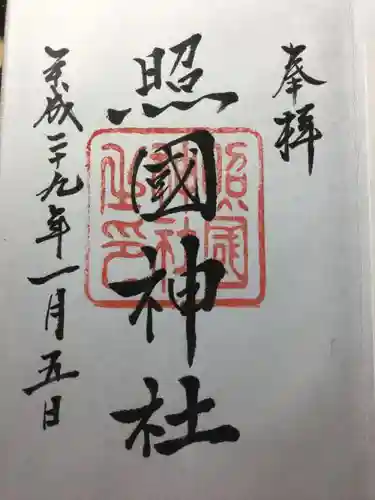 奉拝
照國神社
照國神社之印
平成二十九年一月五日